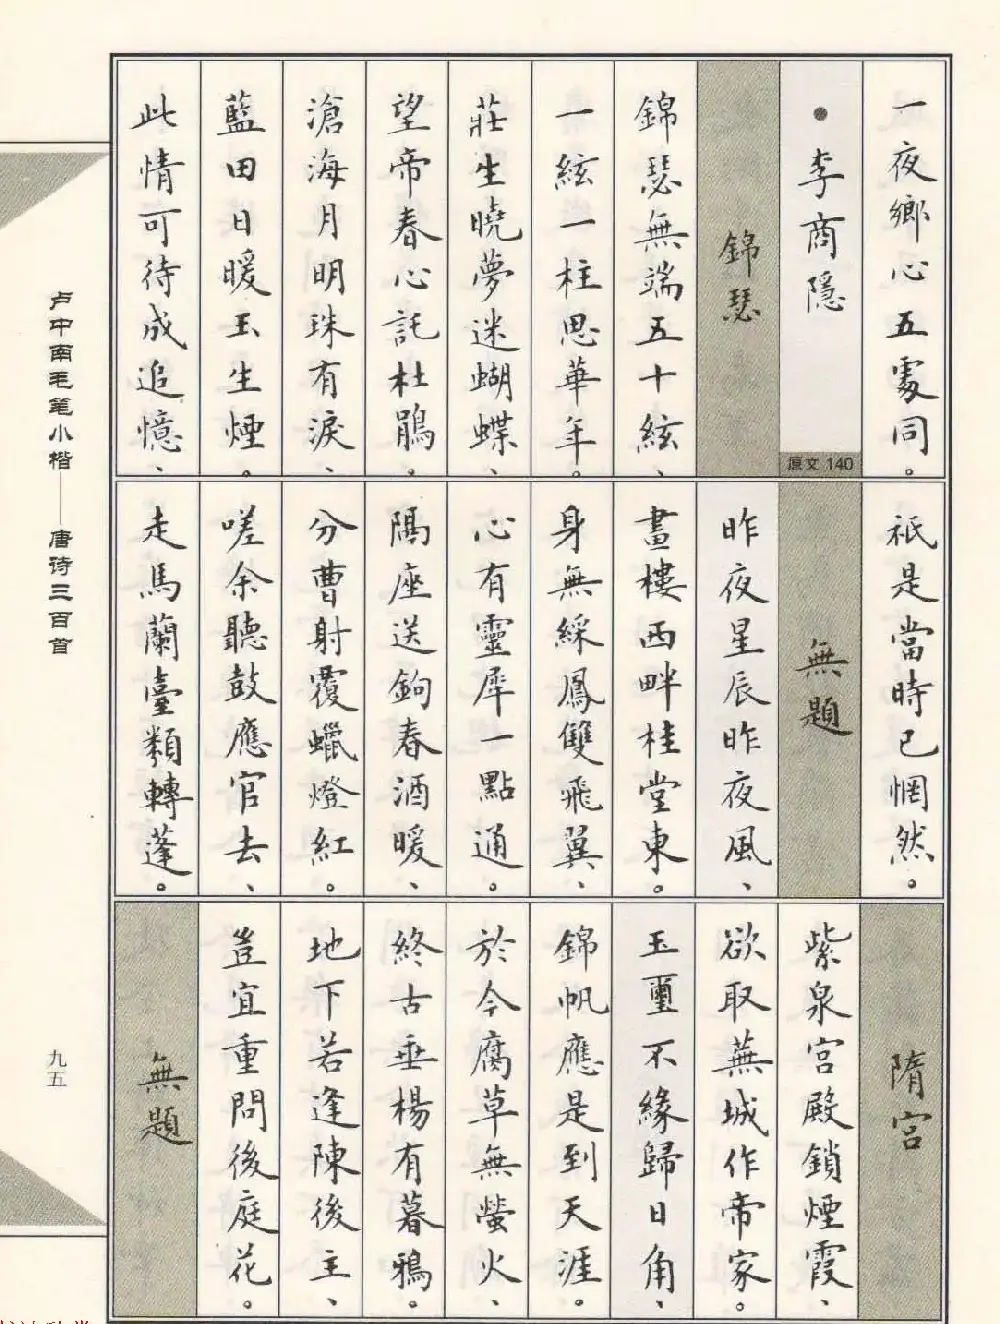 一夜鄉心五處同。
•李商隱
原文 140
錦瑟
錦瑟無端五十絃、
一絃一柱思華年。
莊生曉夢迷蝴蝶、
望帝春心託杜鵑。
滄海月明珠有淚、
藍田日暖玉生煙。
此情可待成追憶、
祇是當時已惘然。
無題
昨夜星辰昨夜風、
畫樓西畔桂堂東。
身無綵鳳雙飛翼、
心有靈犀一點通。
隔座送鉤春酒暖、
分曹射覆蠟燈紅。
嗟余聽鼓應官去、
走馬蘭臺類轉蓬。
隋宮
紫泉宮殿鎖煙霞、
欲取蕪城作帝家。
玉璽不緣歸日角、
錦帆應是到天涯。
於今腐草無螢火、
終古垂楊有暮鴉。
地下若逢陳後主、
豈宜重問後庭花。
無題
卢中南毛笔小楷——唐诗三百首
九五